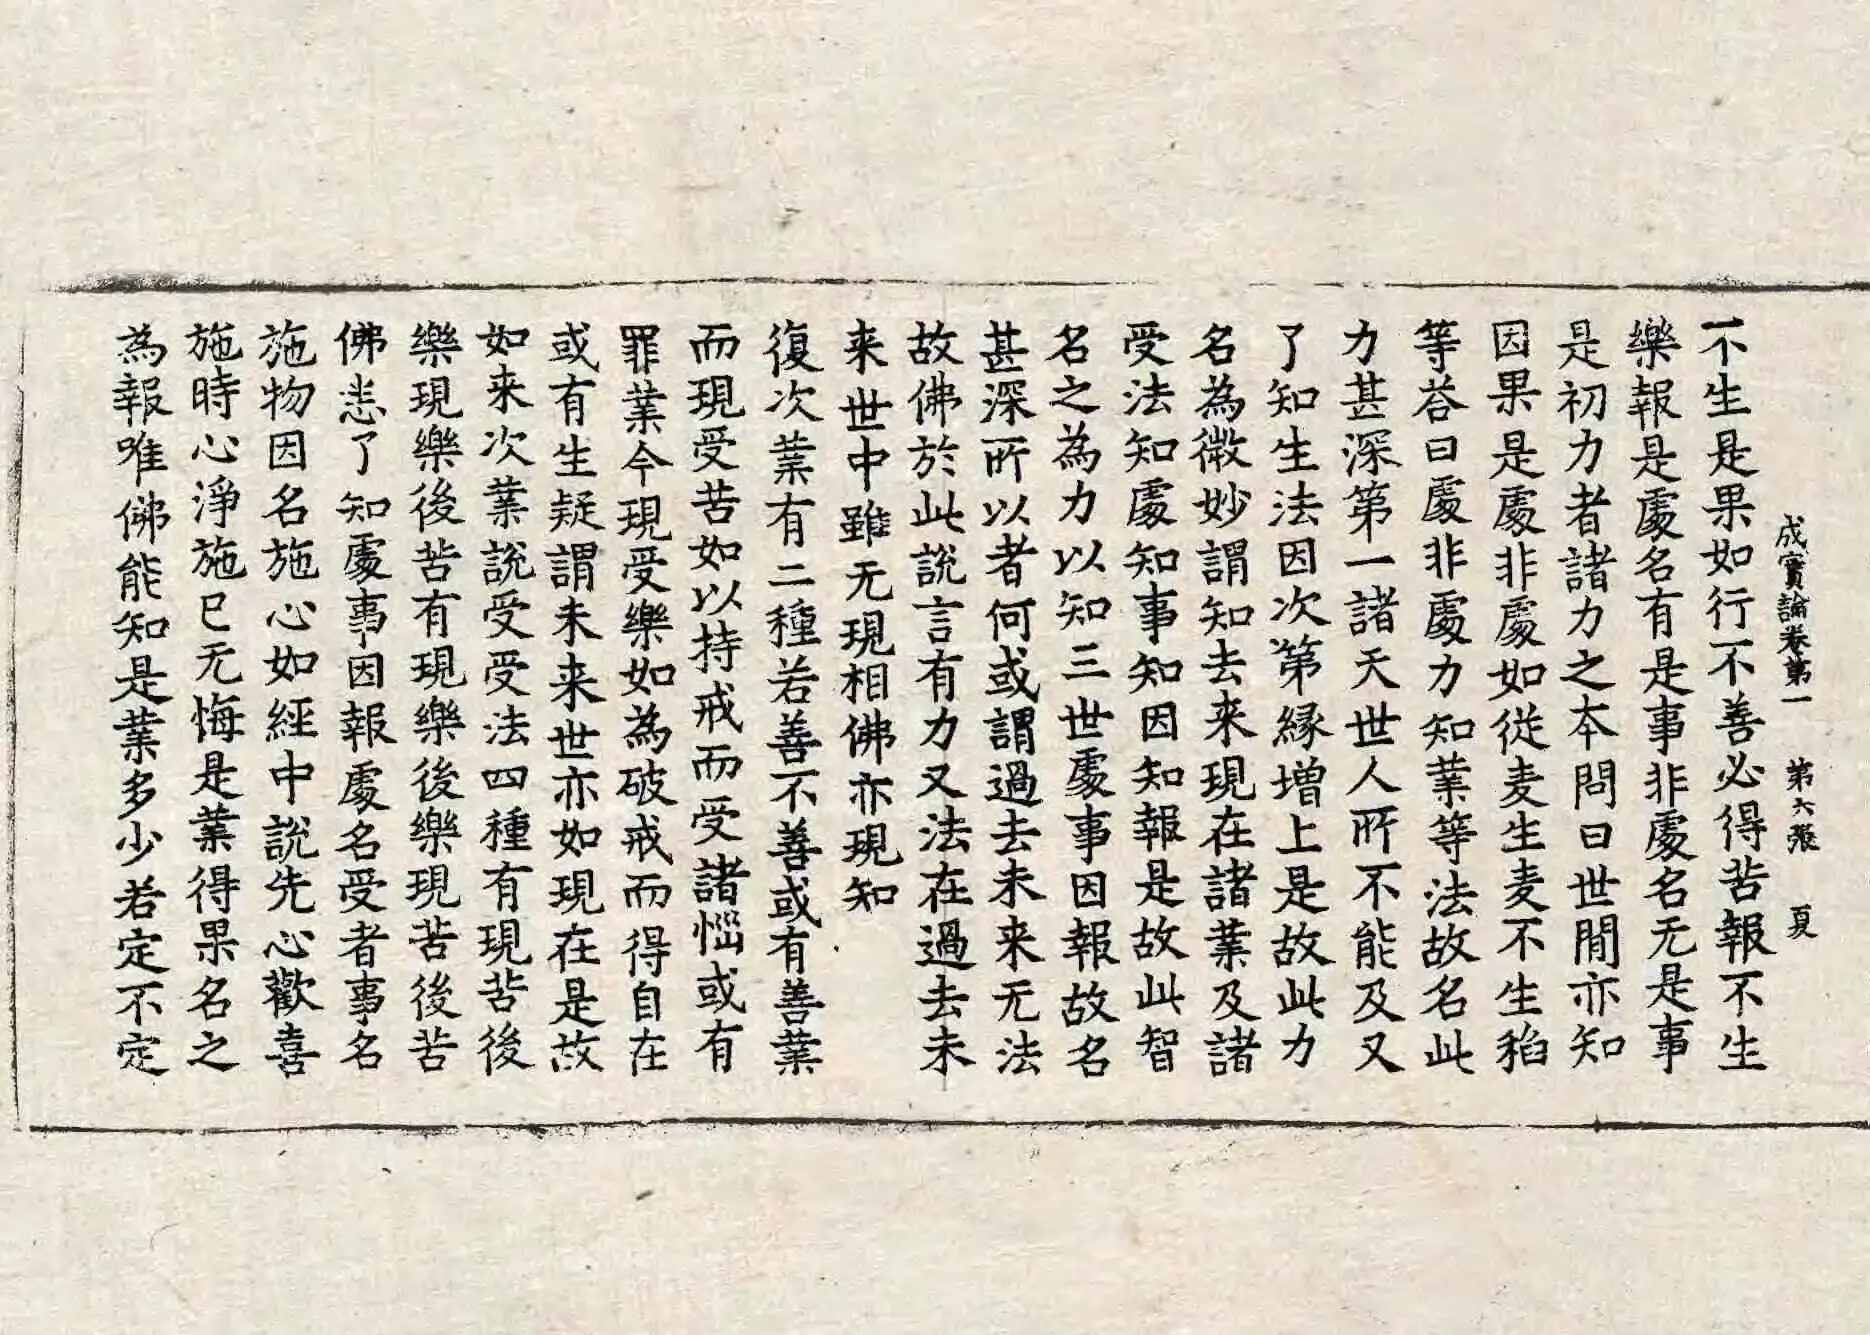 成實論卷第一　第六張　夏
不生是果如行不善必得苦報不生
樂報是處名有是事非處名无是事
是初力者諸力之本問曰世間亦知
因果是處非處如從麦生麦不生稻
等荅曰處非處力知業等法故名此
力甚深第一諸天世人所不能及又
了知生法因次第緣增上是故此力
名為微妙謂知去来現在諸業及諸
受法知處知事知因知報是故此智
名之為力以知三世處事因報故名
甚深所以者何或謂過去未来无法
故佛於此說言有力又法在過去未
来世中雖无現相佛亦現知
復次業有二種若善不善或有善業
而現受苦如以持戒而受諸惱或有
罪業今現受樂如為破戒而得自在
或有生疑謂未来世亦如現在是故
如来次業說受受法四種有現苦後
樂現樂後苦有現樂後樂現苦後苦
佛悉了知處事因報處名受者事名
施物因名施心如經中說先心歡喜
施時心淨施已无悔是業得果名之
為報唯佛能知是業多少若定不定